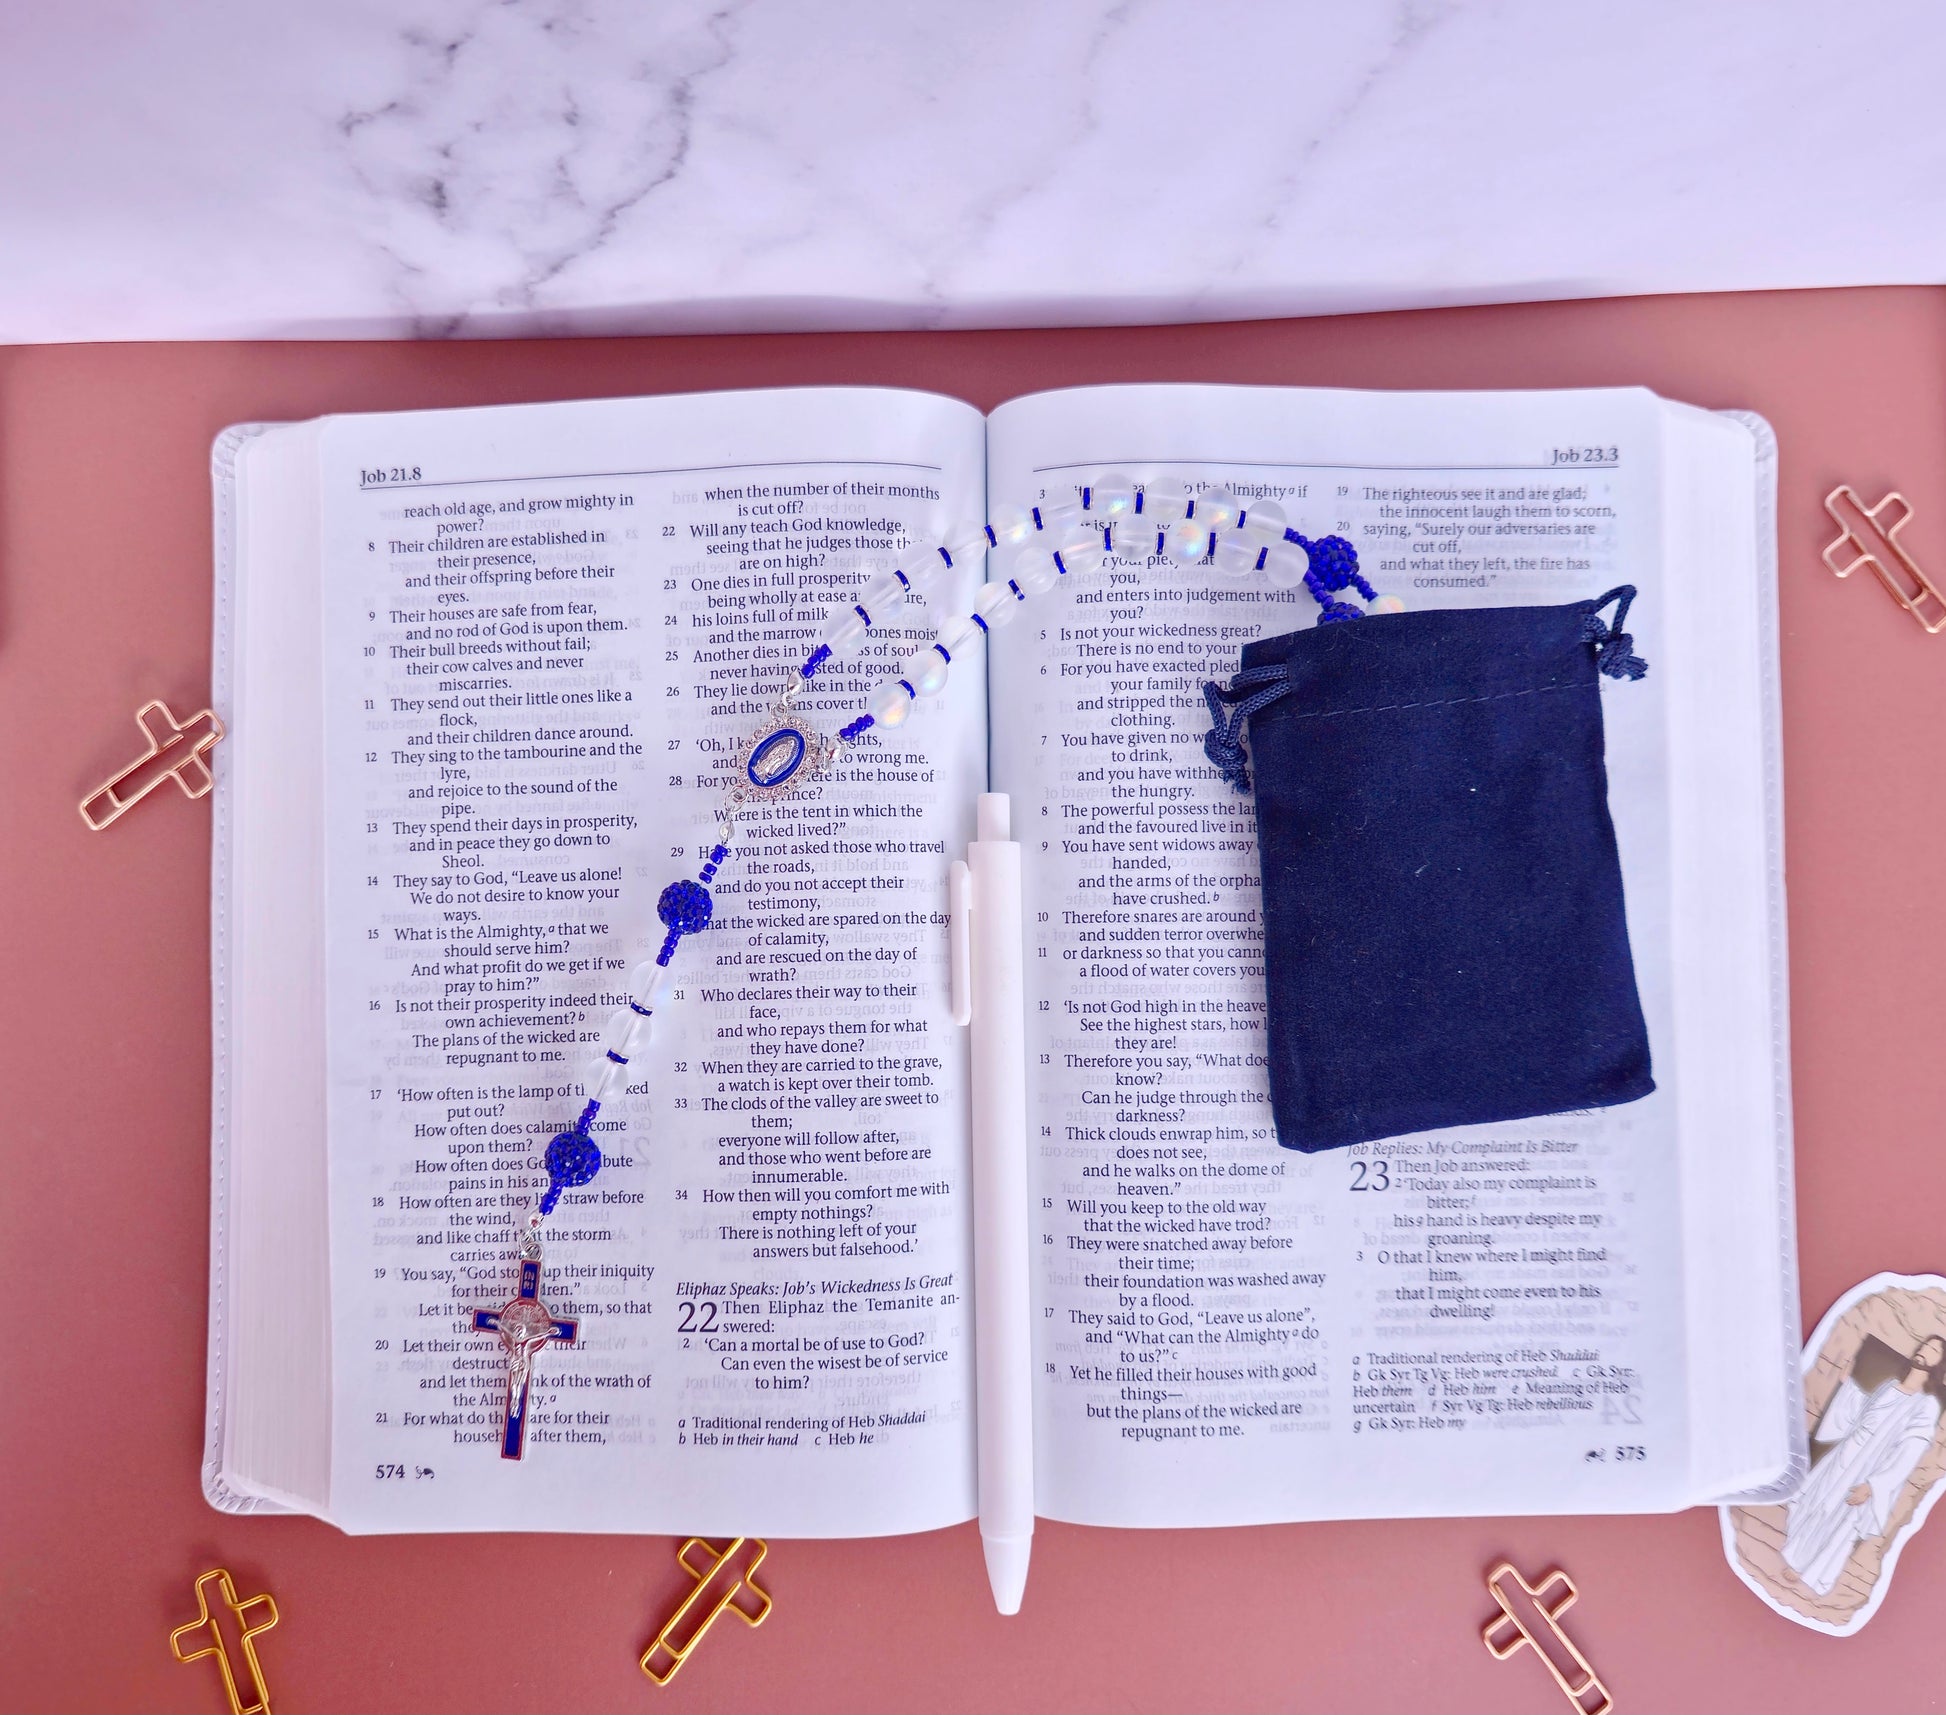 Job 21.8
reach old age, and grow mighty in
power?
8 Their children are established in
their presence,
and their offspring before their
eyes.
9 Their houses are safe from fear,
and no rod of God is upon them.
10 Their bull breeds without fail;
their cow calves and never
miscarries.
11 They send out their little ones like a
flock,
and their children dance around.
12 They sing to the tambourine and the
lyre,
and rejoice to the sound of the
pipe.
13 They spend their days in prosperity,
and in peace they go down to
Sheol.
14 They say to God, “Leave us alone!
We do not desire to know your
ways.
15 What is the Almighty, a that we
should serve him?
And what profit do we get if we
pray to him?”
16 Is not their prosperity indeed their
own achievement? b
The plans of the wicked are
repugnant to me.
17 ‘How often is the lamp of
put out?
How often does calamity come
upon them?
How often does
pains in his
18 How often are they straw before
the wind,
and like chaff the storm
carries
19 You say, “God up their iniquity
for their
Let it to them, so that
20 Let their own their
and let them of the wrath of
the
21 For what do are for their
after them,
574
when the number of their months
is cut off?
22 Will any teach God knowledge,
seeing that he judges those
are on high?
23 One dies in full prosperity
being wholly at ease
24 his loins full of milk
and the marrow bones
25 Another dies in of
never having of good.
26 They lie down in the
and the cover
27 ‘Oh, I
to wrong me.
28 For is the house of
Where is the tent in which the
wicked lived?”
29 Have you not asked those who travel
the roads,
and do you not accept their
testimony,
that the wicked are spared on the day
of calamity,
and are rescued on the day of
wrath?
31 Who declares their way to their
face,
and who repays them for what
they have done?
32 When they are carried to the grave,
a watch is kept over their tomb.
33 The clods of the valley are sweet to
them;
everyone will follow after,
and those who went before are
innumerable.
34 How then will you comfort me with
empty nothings?
There is nothing left of your
answers but falsehood.’
Eliphaz Speaks: Job’s Wickedness Is Great
22 Then Eliphaz the Temanite an-
swered:
2 ‘Can a mortal be of use to God?
Can even the wisest be of service
to him?
a Traditional rendering of Heb Shaddai
b Heb in their hand c Heb he
Job 23.3
3 Almighty a if
you,
and enters into judgement with
you?
5 Is not your wickedness great?
There is no end to your
6 For you have exacted
your family
and stripped the
clothing.
7 You have given no
to drink,
and you have
the hungry.
8 The powerful possess the
and the favoured live in
9 You have sent widows away
handed,
and the arms of the
have crushed. b
10 Therefore snares are around
and sudden terror
11 or darkness so that you
a flood of water covers
12 ‘Is not God high in the
See the highest stars, how
they are!
13 Therefore you say, “What
know?
Can he judge through the
darkness?
14 Thick clouds enwrap him, so
does not see,
and he walks on the dome of
heaven.”
15 Will you keep to the old way
that the wicked have trod?
16 They were snatched away before
their time;
their foundation was washed away
by a flood.
17 They said to God, “Leave us alone”,
and “What can the Almighty a do
to us?” c
18 Yet he filled their houses with good
things—
but the plans of the wicked are
repugnant to me.
19 The righteous see it and are glad;
the innocent laugh them to scorn,
20 saying, “Surely our adversaries are
cut off,
and what they left, the fire has
consumed.”
Job Replies: My Complaint Is Bitter
23 Then Job answered:
2 ‘Today also my complaint is
bitter; f
his g hand is heavy despite my
groaning.
3 O that I knew where I might find
him,
that I might come even to his
dwelling!
a Traditional rendering of Heb Shaddai
b Gk Syr Tg Vg: Heb were crushed c Gk Syr:
Heb them d Heb him e Meaning of Heb
uncertain f Syr Vg Tg: Heb rebellious
g Gk Syr: Heb my
575